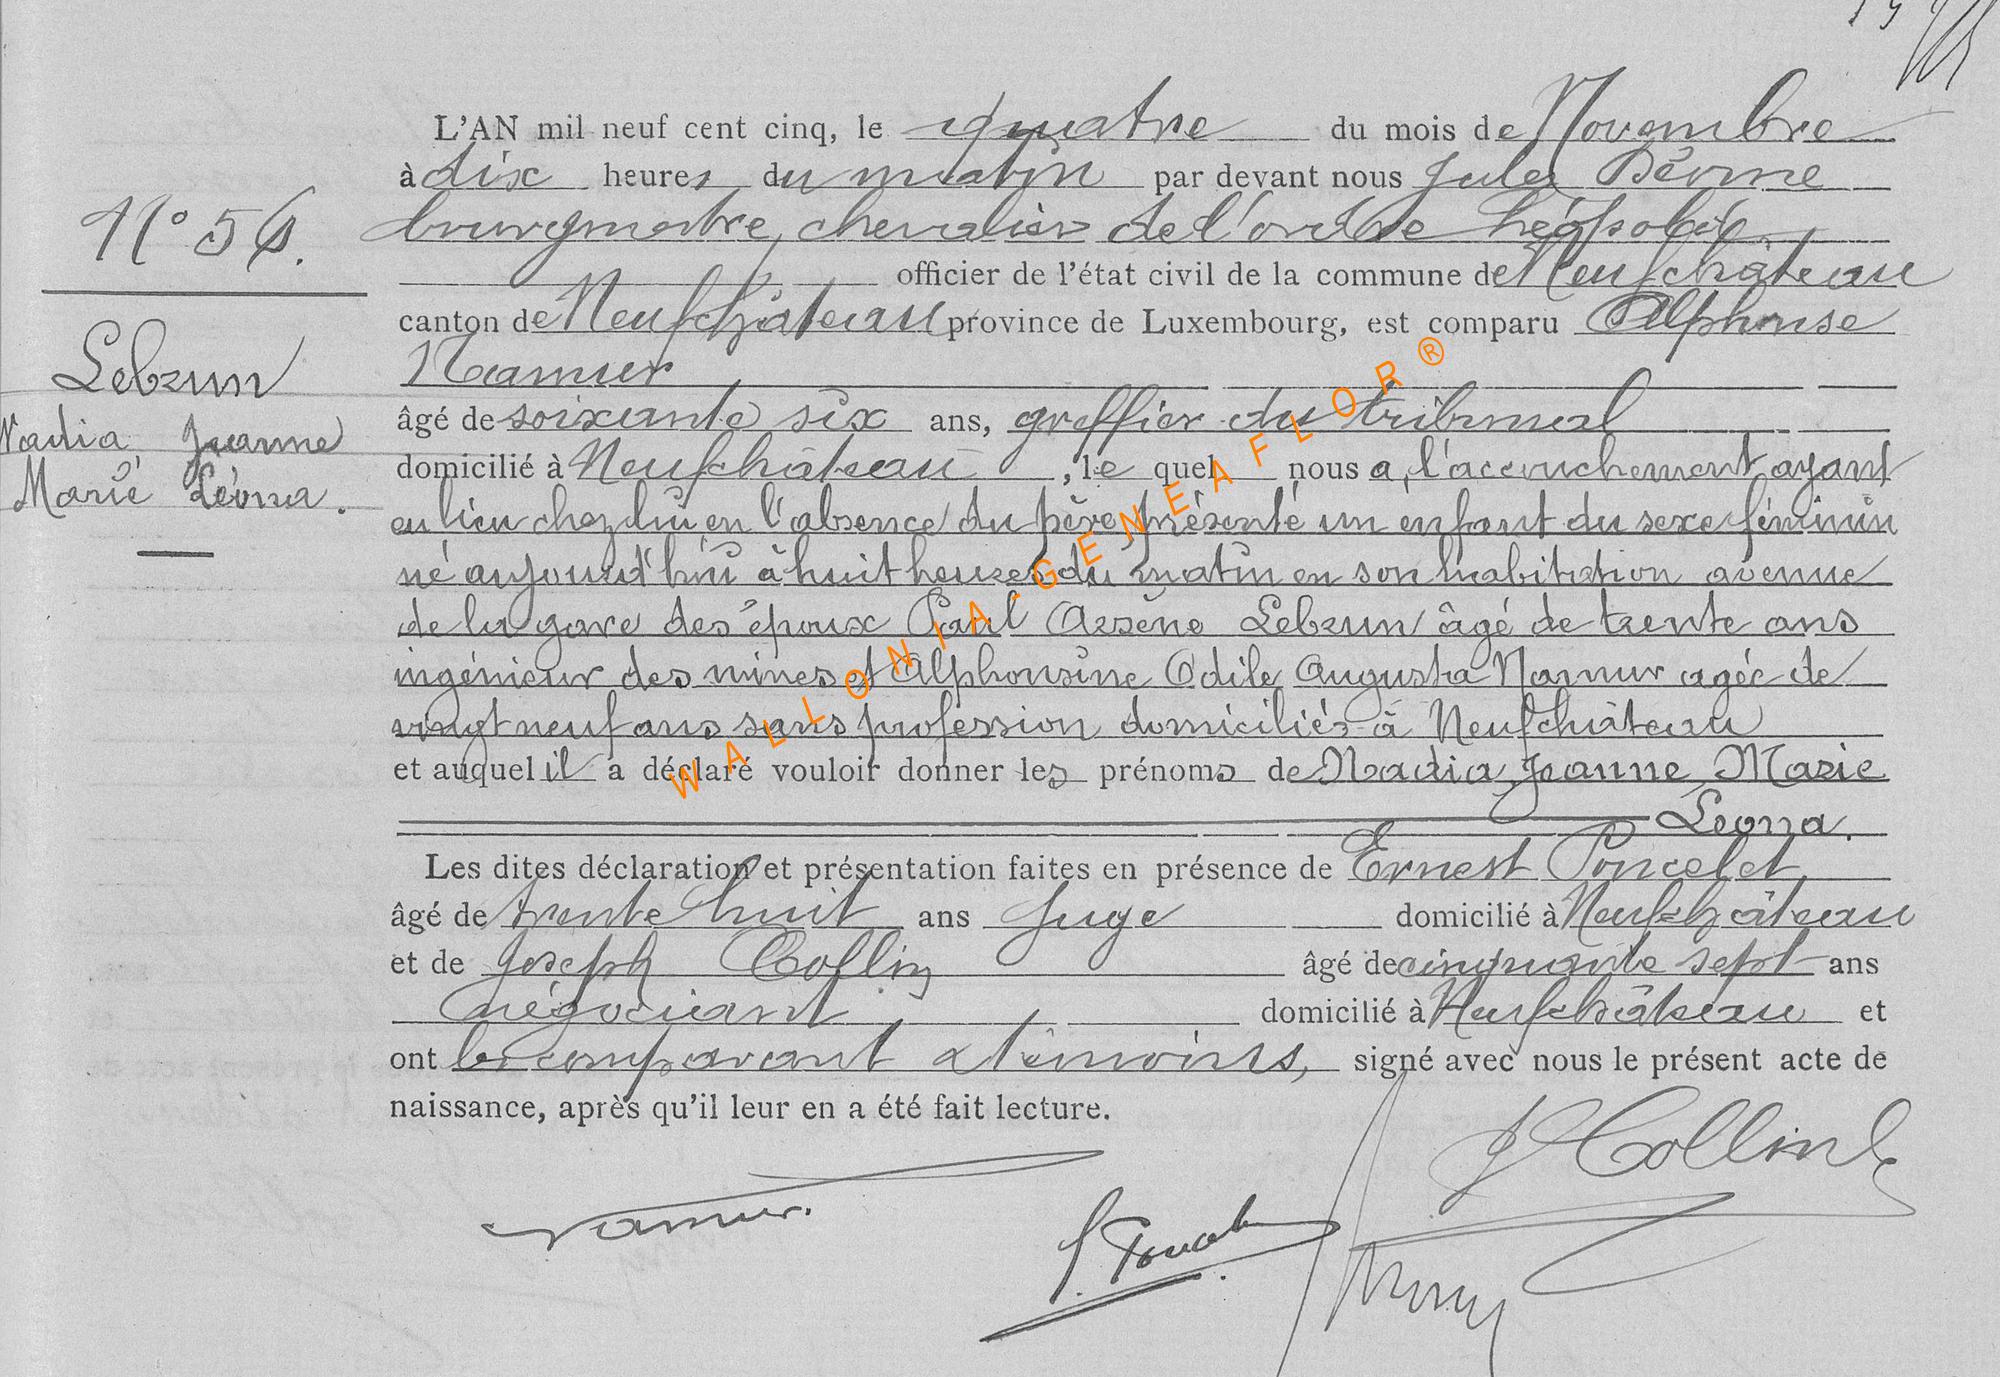 L'AN mil neuf cent cinq, le quatre du mois de Novembre
à dix heures du matin par devant nous Jules
bourgmestre, chevalier de l'ordre Léopold
N° 56.
officier de l'état civil de la commune de Neufchâteau
canton de Neufchâteau province de Luxembourg, est comparu Alphonse
Namur
Lebrun
Nadia, Jeanne
Marie Léona.
âgé de soixante six ans, greffier du tribunal
domicilié à Neufchâteau, le quel nous a, l'accouchement ayant
eu lieu chez lui en l'absence du père présenté un enfant du sexe féminin
né aujourd'hui à huit heures du matin en son habitation avenue
de la gare des époux Paul Arsène Lebrun âgé de trente ans
ingénieur des mines et Alphonsine Odile Augusta Namur agée de
vingt neuf ans sans profession domiciliés à Neufchâteau
et auquel il a déclaré vouloir donner les prénoms de Nadia, Jeanne, Marie
Léona.
Les dites déclaration et présentation faites en présence de Ernest Poncelet
âgé de trente huit ans juge domicilié à Neufchâteau
et de Joseph Collin âgé de cinquante sept ans
négociant domicilié à Neufchâteau et
ont le comparant & témoins, signé avec nous le présent acte de
naissance, après qu'il leur en a été fait lecture.
J Collin
Namur.
E. Poncelet
WALLONIA-GENEAFLOR®